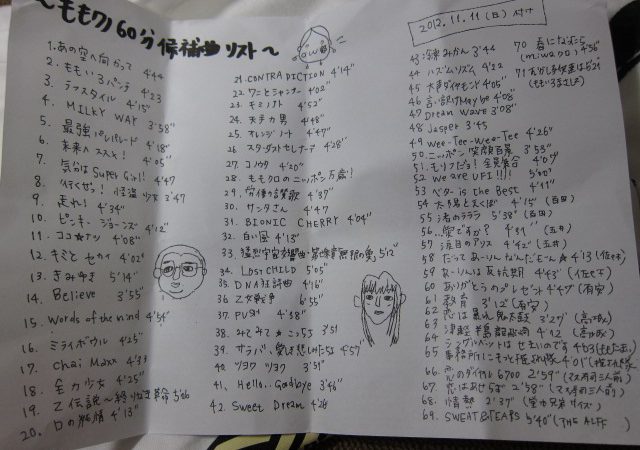 〜ももクロ60分候補曲リスト〜
2012.11.11(日)付け
1.あの空へ向かって 4'44
2. ももいろパンチ 4'23
3. ラフスタイル 4'15"
4. MILKY WAY 3'58"
5. 最強パレパレード 4'18"
6. 未来へススメ! 4'05"
7. 気分はSuper Girl! 4'47
8. 行くぜっ!怪盗少女 3'47
9. 走れ! 4'34"
10. ピンキージョーンズ 4'12"
11. ココ★ナツ 4'08"
12. キミとセカイ 4'02"
13. きみゆき 5'14"
14. Believe 3'55"
15. Words of the mind 4'54"
16. ミライボウル 4'25"
17. Chai Maxx 4'33
18. 全力少女 4'25"
19. Z伝説〜終わりなき革命 5'06
20. Dの純情 4'13"
21. CONTRADICTION 4'14"
22. ワニとシャンプー 4'02"
23. キミノアト 4'52"
24. 天手力男 4'48"
25. オレンジノート 4'47"
26. スターダストセレナーデ 4'28"
27. コノウタ 4'20"
28. ももクロのニッポン万歳!
29. 労働讃歌 4'37"
30. サンタさん 4'47
31. BIONIC CHERRY 4'04"
32. 白い風 4'13"
33. 猛烈宇宙交響曲・第七楽章「無限の愛」5'12"
34. LOST CHILD 5'05"
35. DNA狂詩曲 4'16"
36. 乙女戦争 6'55"
37. PUSH 4'38"
38. みてみて★こっちっち 3'51
39. サラバ、愛しき悲しみたちよ 4'57"
40. ツヨクツヨク 3'51"
41. Hello..Goodbye 3'46"
42. Sweet Dream 4'28
43: 冷凍みかん 3'44
44 ハズムリズム 4'22
45 大声ダイヤモンド 4'05"
46 言い訳Maybe 4'08"
47 Dream Wave 3'08"
48 Jasper 3'45
49. wee-Tee-Wee-Tee 4'26"
50. ニッポン笑顔百景 3'53"
51. もリフだョ!全員集合 4'09
52 We are UFI!!! 5'01"
53 ベター is the Best 4'11"
54 太陽とえくぼ 4'15" (百田)
55 渚のラララ 5'38" (百田)
56 恋ですか? 4'31" (玉井)
57 涙目のアリス 4'42" (玉井)
58 だってあーりんなんだもーん★ 4'13 (佐々木)
59 あーりんは反抗期 4'43 (佐々木)
60 ありがとうのプレゼント 4'47 (有安)
61 教育 3'12" (有安)
62 恋は暴れ鬼太鼓 3'27 (高城)
63 津軽半島龍飛崎 4'12 (高城)
64 シングルベッドはせまいのです 4'03 (ももたまい)
65 事務所にもっと推され隊 4'01" (推され隊)
66 恋のダイヤル6700 2'59"
67 恋はあせらず 2'58"
68 情熱 2'37"
69. SWEAT&TEARS 5'40" (THE ALFEE)
70 春になったら (miwaクロ) 4'56"